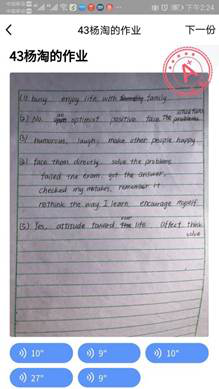 下午2:24
43杨淘的作业
下一份
43杨淘的作业
A+
(1) busy enjoy life with family
(2) No. an optimist positive face the problems
(3) humorous, laugh, make other people happy
(4) face them directly. solve the problems
failed the exam. got the answer,
checked my mistakes, remember it
rethink the way I learn encourage myself
(5) Yes, attitude toward life affect think
10"
9"
10"
27"
9"